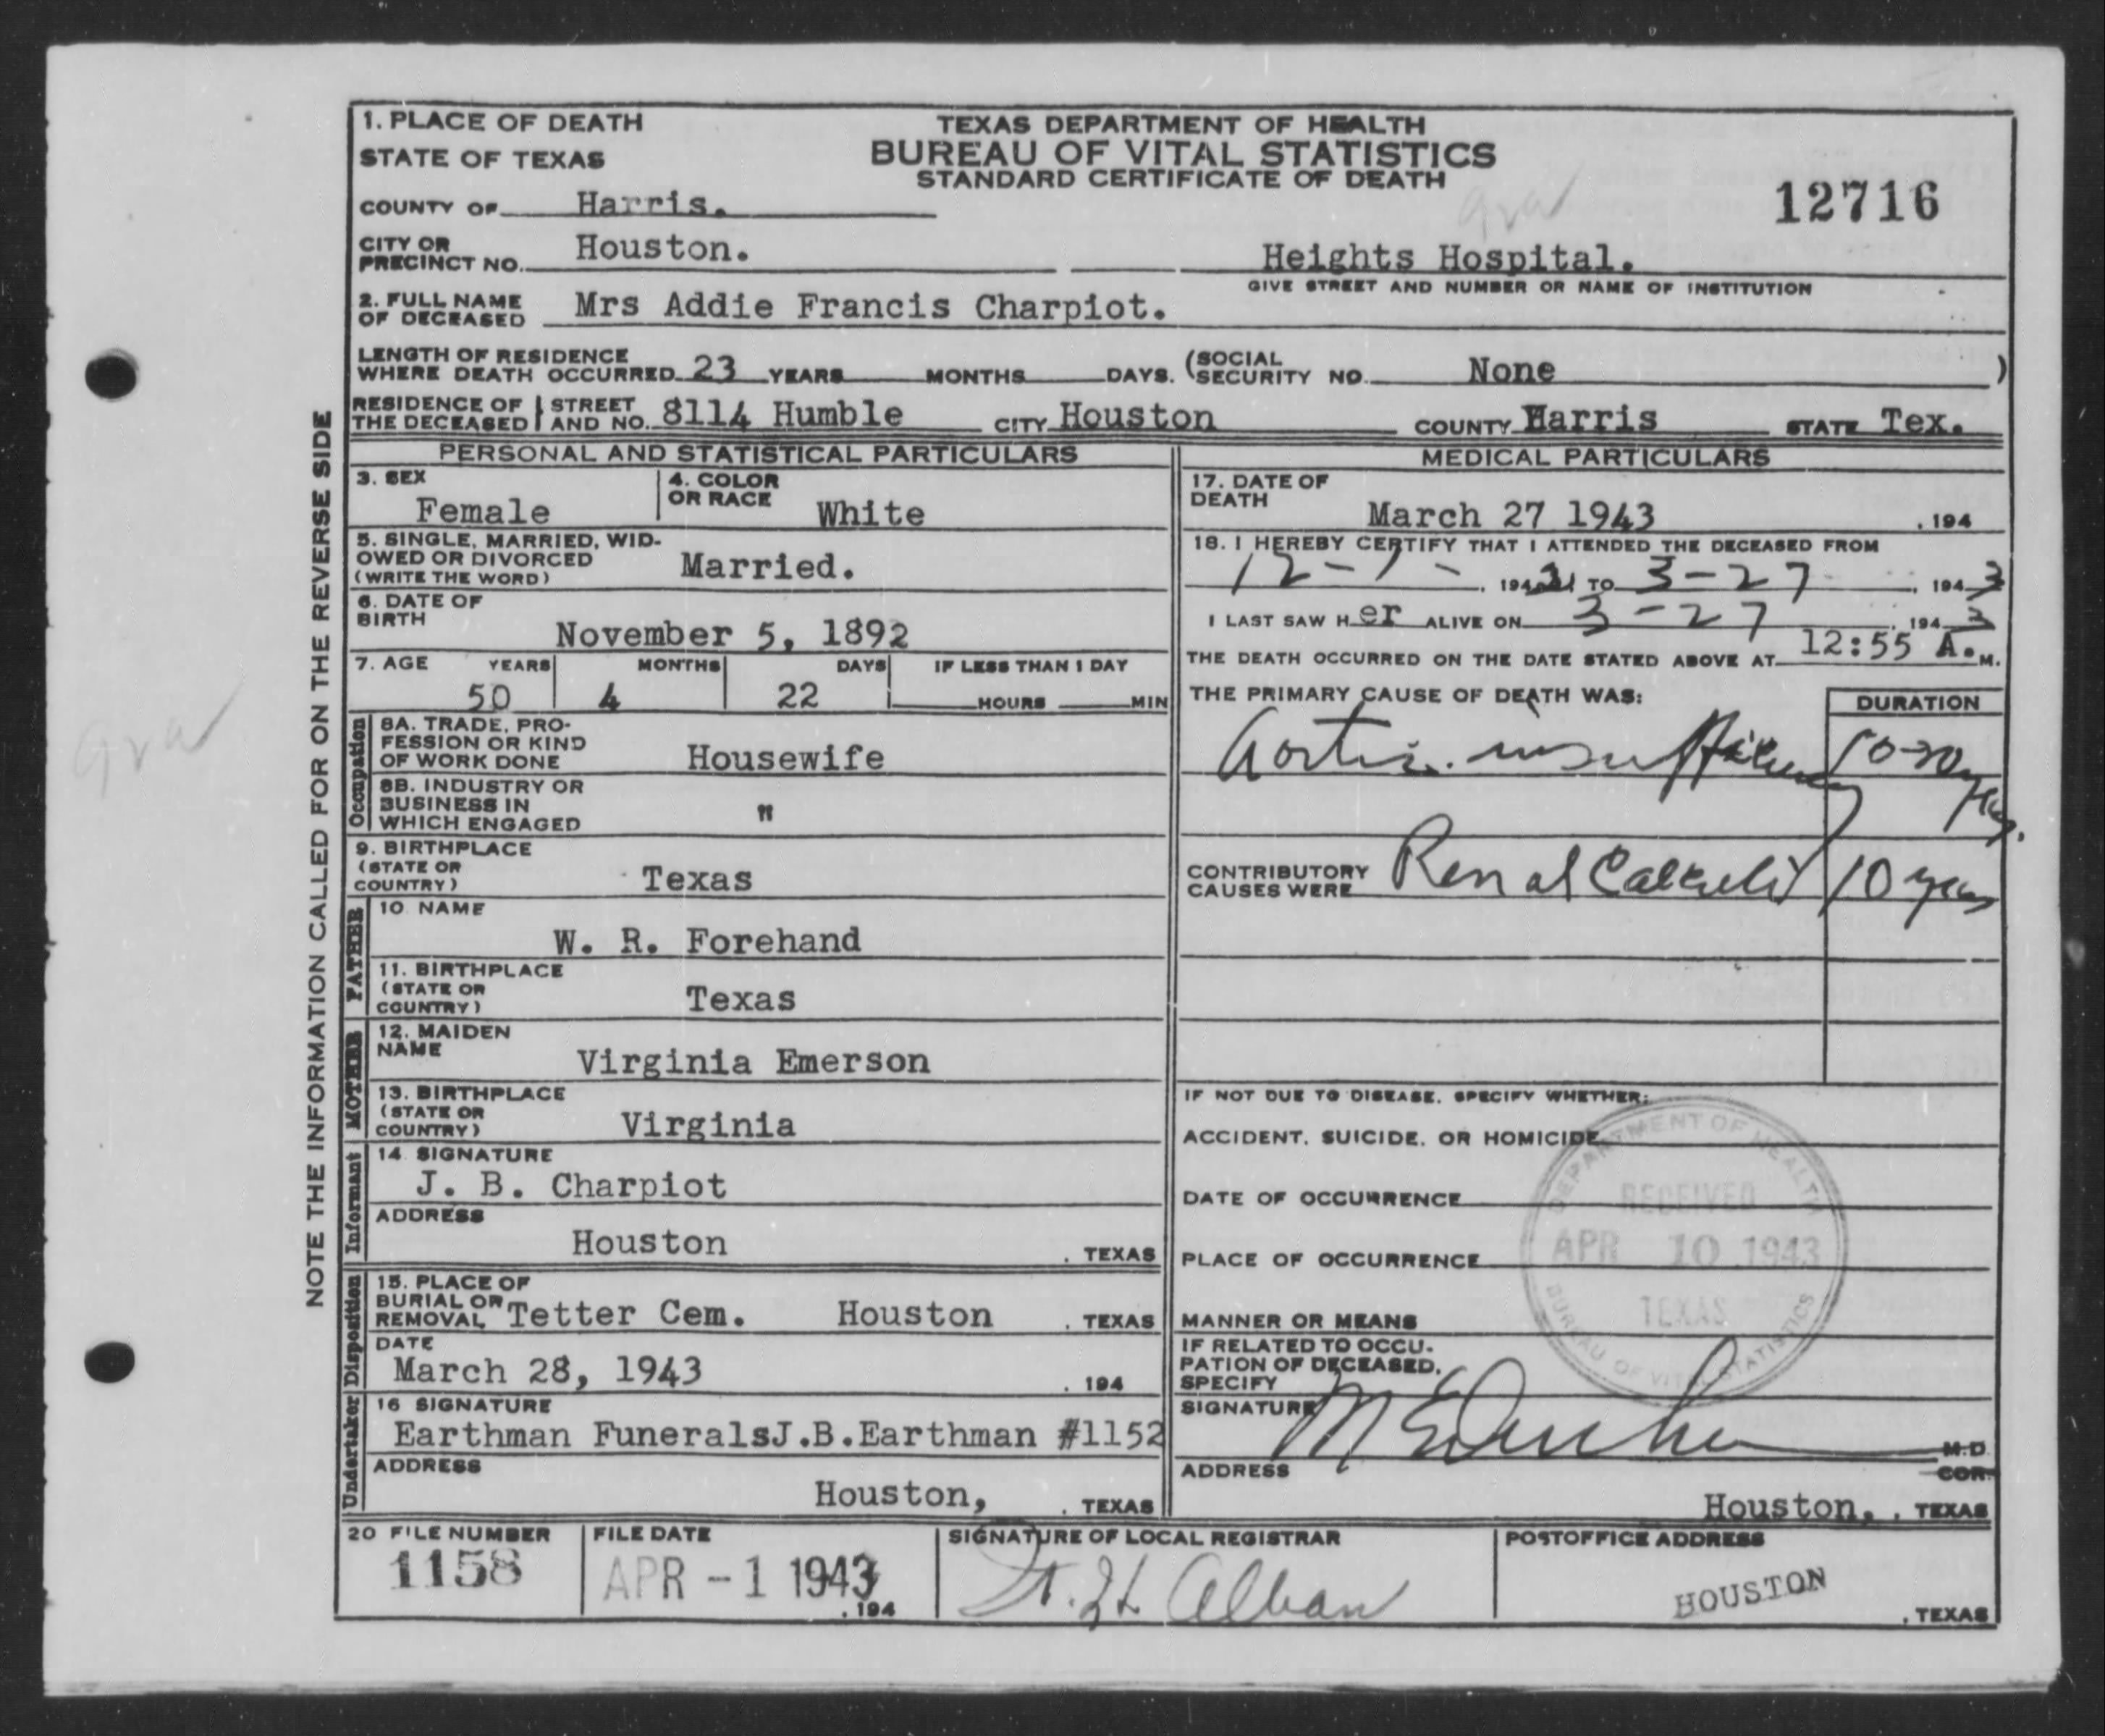 1. PLACE OF DEATH
STATE OF TEXAS
TEXAS DEPARTMENT OF HEALTH
BUREAU OF VITAL STATISTICS
STANDARD CERTIFICATE OF DEATH
12716
COUNTY OF Harris.
CITY OR PRECINCT NO. Houston. Heights Hospital.
GIVE STREET AND NUMBER OR NAME OF INSTITUTION
2. FULL NAME OF DECEASED Mrs Addie Francis Charpiot.
LENGTH OF RESIDENCE WHERE DEATH OCCURRED 23 YEARS MONTHS DAYS. (SOCIAL SECURITY NO. None )
RESIDENCE OF THE DECEASED STREET AND NO. 8114 Humble CITY Houston COUNTY Harris STATE Tex.
NOTE THE INFORMATION CALLED FOR ON THE REVERSE SIDE
PERSONAL AND STATISTICAL PARTICULARS
3. SEX Female
4. COLOR OR RACE White
5. SINGLE, MARRIED, WIDOWED OR DIVORCED (WRITE THE WORD) Married.
6. DATE OF BIRTH November 5, 1892
7. AGE YEARS MONTHS DAYS IF LESS THAN 1 DAY
50 4 22 HOURS MIN
Occupation
8A. TRADE, PROFESSION OR KIND OF WORK DONE Housewife
8B. INDUSTRY OR BUSINESS IN WHICH ENGAGED "
9. BIRTHPLACE (STATE OR COUNTRY) Texas
FATHER
10. NAME W. R. Forehand
11. BIRTHPLACE (STATE OR COUNTRY) Texas
MOTHER
12. MAIDEN NAME Virginia Emerson
13. BIRTHPLACE (STATE OR COUNTRY) Virginia
Informant
14. SIGNATURE J. B. Charpiot
ADDRESS Houston , TEXAS
Disposition
15. PLACE OF BURIAL OR REMOVAL Tetter Cem. Houston , TEXAS
DATE March 28, 1943 , 194
Undertaker
16 SIGNATURE Earthman FuneralsJ.B.Earthman #1152
ADDRESS Houston, , TEXAS
MEDICAL PARTICULARS
17. DATE OF DEATH March 27 1943 , 194
18. I HEREBY CERTIFY THAT I ATTENDED THE DECEASED FROM
12-1- , 194 TO 3-27 , 1943
I LAST SAW Her ALIVE ON 3-27 , 1943
THE DEATH OCCURRED ON THE DATE STATED ABOVE AT 12:55 A.M.
THE PRIMARY CAUSE OF DEATH WAS: DURATION
Aortic insufficiency 10-20 yrs.
CONTRIBUTORY CAUSES WERE Renal Calculi 10 years
IF NOT DUE TO DISEASE, SPECIFY WHETHER:
ACCIDENT, SUICIDE, OR HOMICIDE
DATE OF OCCURRENCE
PLACE OF OCCURRENCE
MANNER OR MEANS
IF RELATED TO OCCUPATION OF DECEASED, SPECIFY
DEPARTMENT OF HEALTH
RECEIVED
APR 10 1943
TEXAS
BUREAU OF VITAL STATISTICS
SIGNATURE M.D.
COR.
ADDRESS Houston, , TEXAS
20 FILE NUMBER 1158
FILE DATE APR -1 1943 , 194
SIGNATURE OF LOCAL REGISTRAR Alban
POSTOFFICE ADDRESS HOUSTON , TEXAS